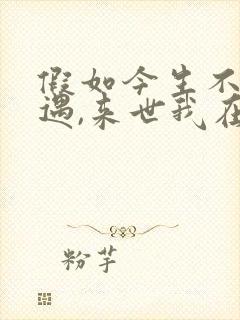 假如今生不
遇,来世我在
粉芋